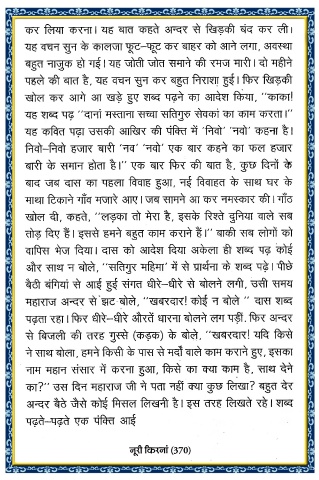 कर लिया करना। यह बात कहते अन्दर से खिड़की बंद कर ली।
यह वचन सुन के कालजा फूट-फूट कर बाहर को आने लगा, अवस्था
बहुत नाजुक हो गई। यह जोती जोत समाने की रमज मारी। दो महीने
पहले की बात है, यह वचन सुन कर बहुत निराशा हुई। फिर खिड़की
खोल कर आगे आ खड़े हुए शब्द पढ़ने का आदेश किया, ''काका!
यह शब्द पढ़ ''दानां मस्ताना सच्चा सतिगुरु सेवकां का काम करता।''
यह कवित पढ़ा उसकी आखिर की पंक्ति में 'निवो' 'नवो' कहना है।
निवो-निवो हजार बारी 'नव' 'नवो' एक बार कहने का फल हजार
बारी के समान होता है।'' एक बार फिर की बात है, कुछ दिनों के
बाद जब दास का पहला विवाह हुआ, नई विवाहत के साथ घर के
माथा टिकाने गाँव मजारे आए। जब सामने आ कर नमस्कार की। गाँठ
खोल दी, कहते, ''लड़का तो मेरा है, इसके रिश्ते दुनिया वाले सब
तोड़ दिए हैं। इससे हमने बहुत काम कराने हैं।'' बाकी सब लोगों को
वापिस भेज दिया। दास को आदेश दिया अकेला ही शब्द पढ़ कोई
और साथ न बोले, ''सतिगुर महिमा'' में से प्रार्थना के शब्द पढ़े। पीछे
बैठी बंगियां से आई हुई संगत धीरे-धीरे से बोलने लगी, उसी समय
महाराज अन्दर से झट बोले, ''खबरदार! कोई न बोले '' दास शब्द
पढ़ता रहा। फिर धीरे-धीरे औरतें धारना बोलने लग पड़ीं. फिर अन्दर
से बिजली की तरह गुस्से (कड़क) के बोले, ''खबरदार! यदि किसे
ने साथ बोला, हमने किसी के पास से मर्दों वाले काम कराने हुए, इसका
नाम महान संसार में करना हुआ, किसे का क्या काम है, साथ देने
का?'' उस दिन महाराज जी ने पता नहीं क्या कुछ लिखा? बहुत देर
अन्दर बैठे जैसे कोई मिसल लिखनी है। इस तरह लिखते रहे। शब्द
पढ़ते-पढ़ते एक पंक्ति आई
नूरी किरनां (370)